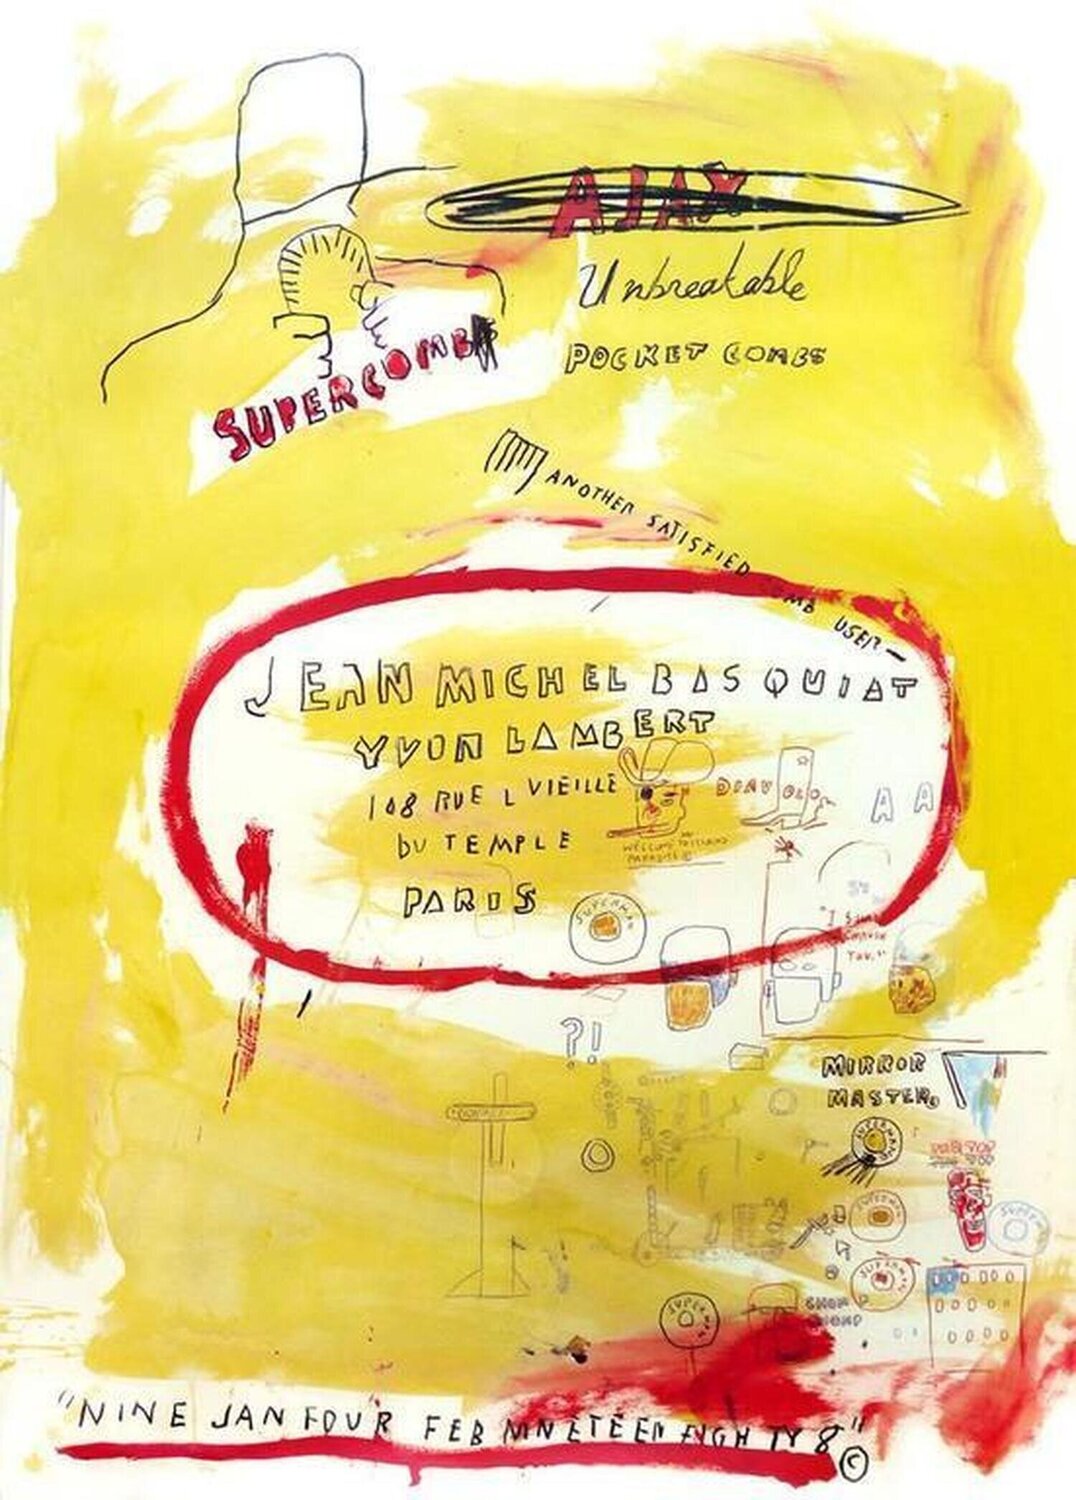 AJAX
Unbreakable
POCKET COMBS
SUPERCOMB
ANOTHER SATISFIED COMB USER—
JEAN MICHEL BASQUIAT
YVON LAMBERT
108 RUE L VIEILLE
DU TEMPLE
PARIS
DIAVOLO
A A
SUPERMAN
?!
MIRROR
MASTER
SUPERMAN
SUPERMAN
SUPERMAN
SUPERMAN
CHOMP
CHOMP
"NINE JAN FOUR FEB NINETEEN EIGHTY 8"
©